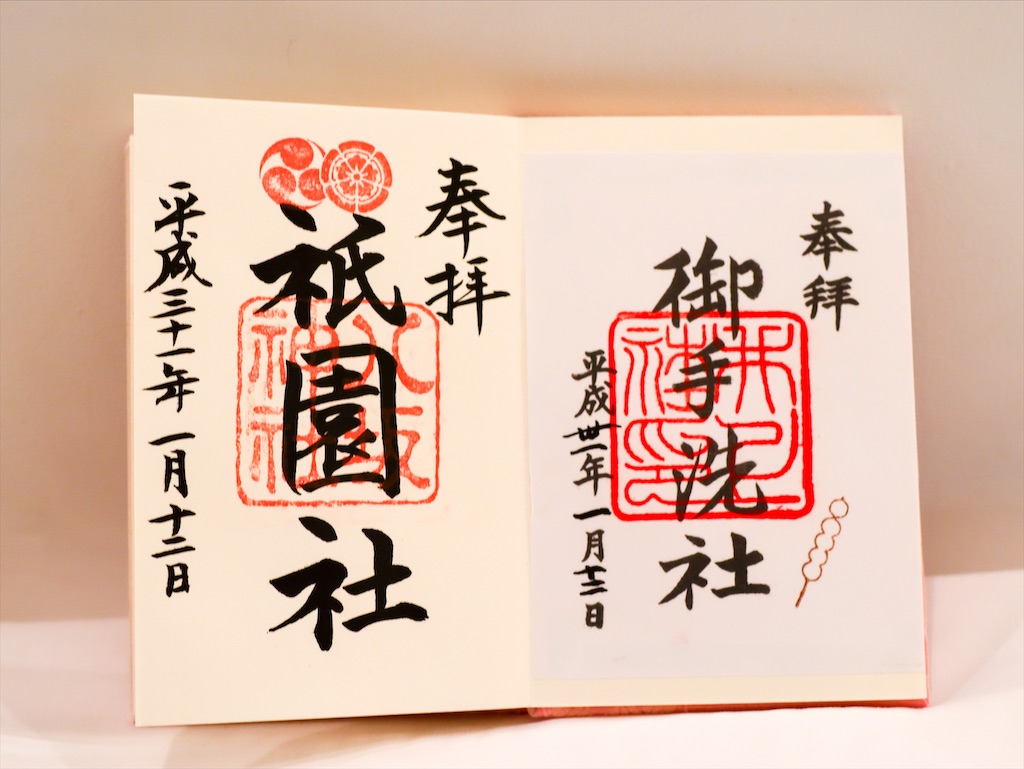 奉拝
御手洗社
平成卅一年一月十二日
奉拝
祇園社
八坂神社
平成三十一年一月十二日